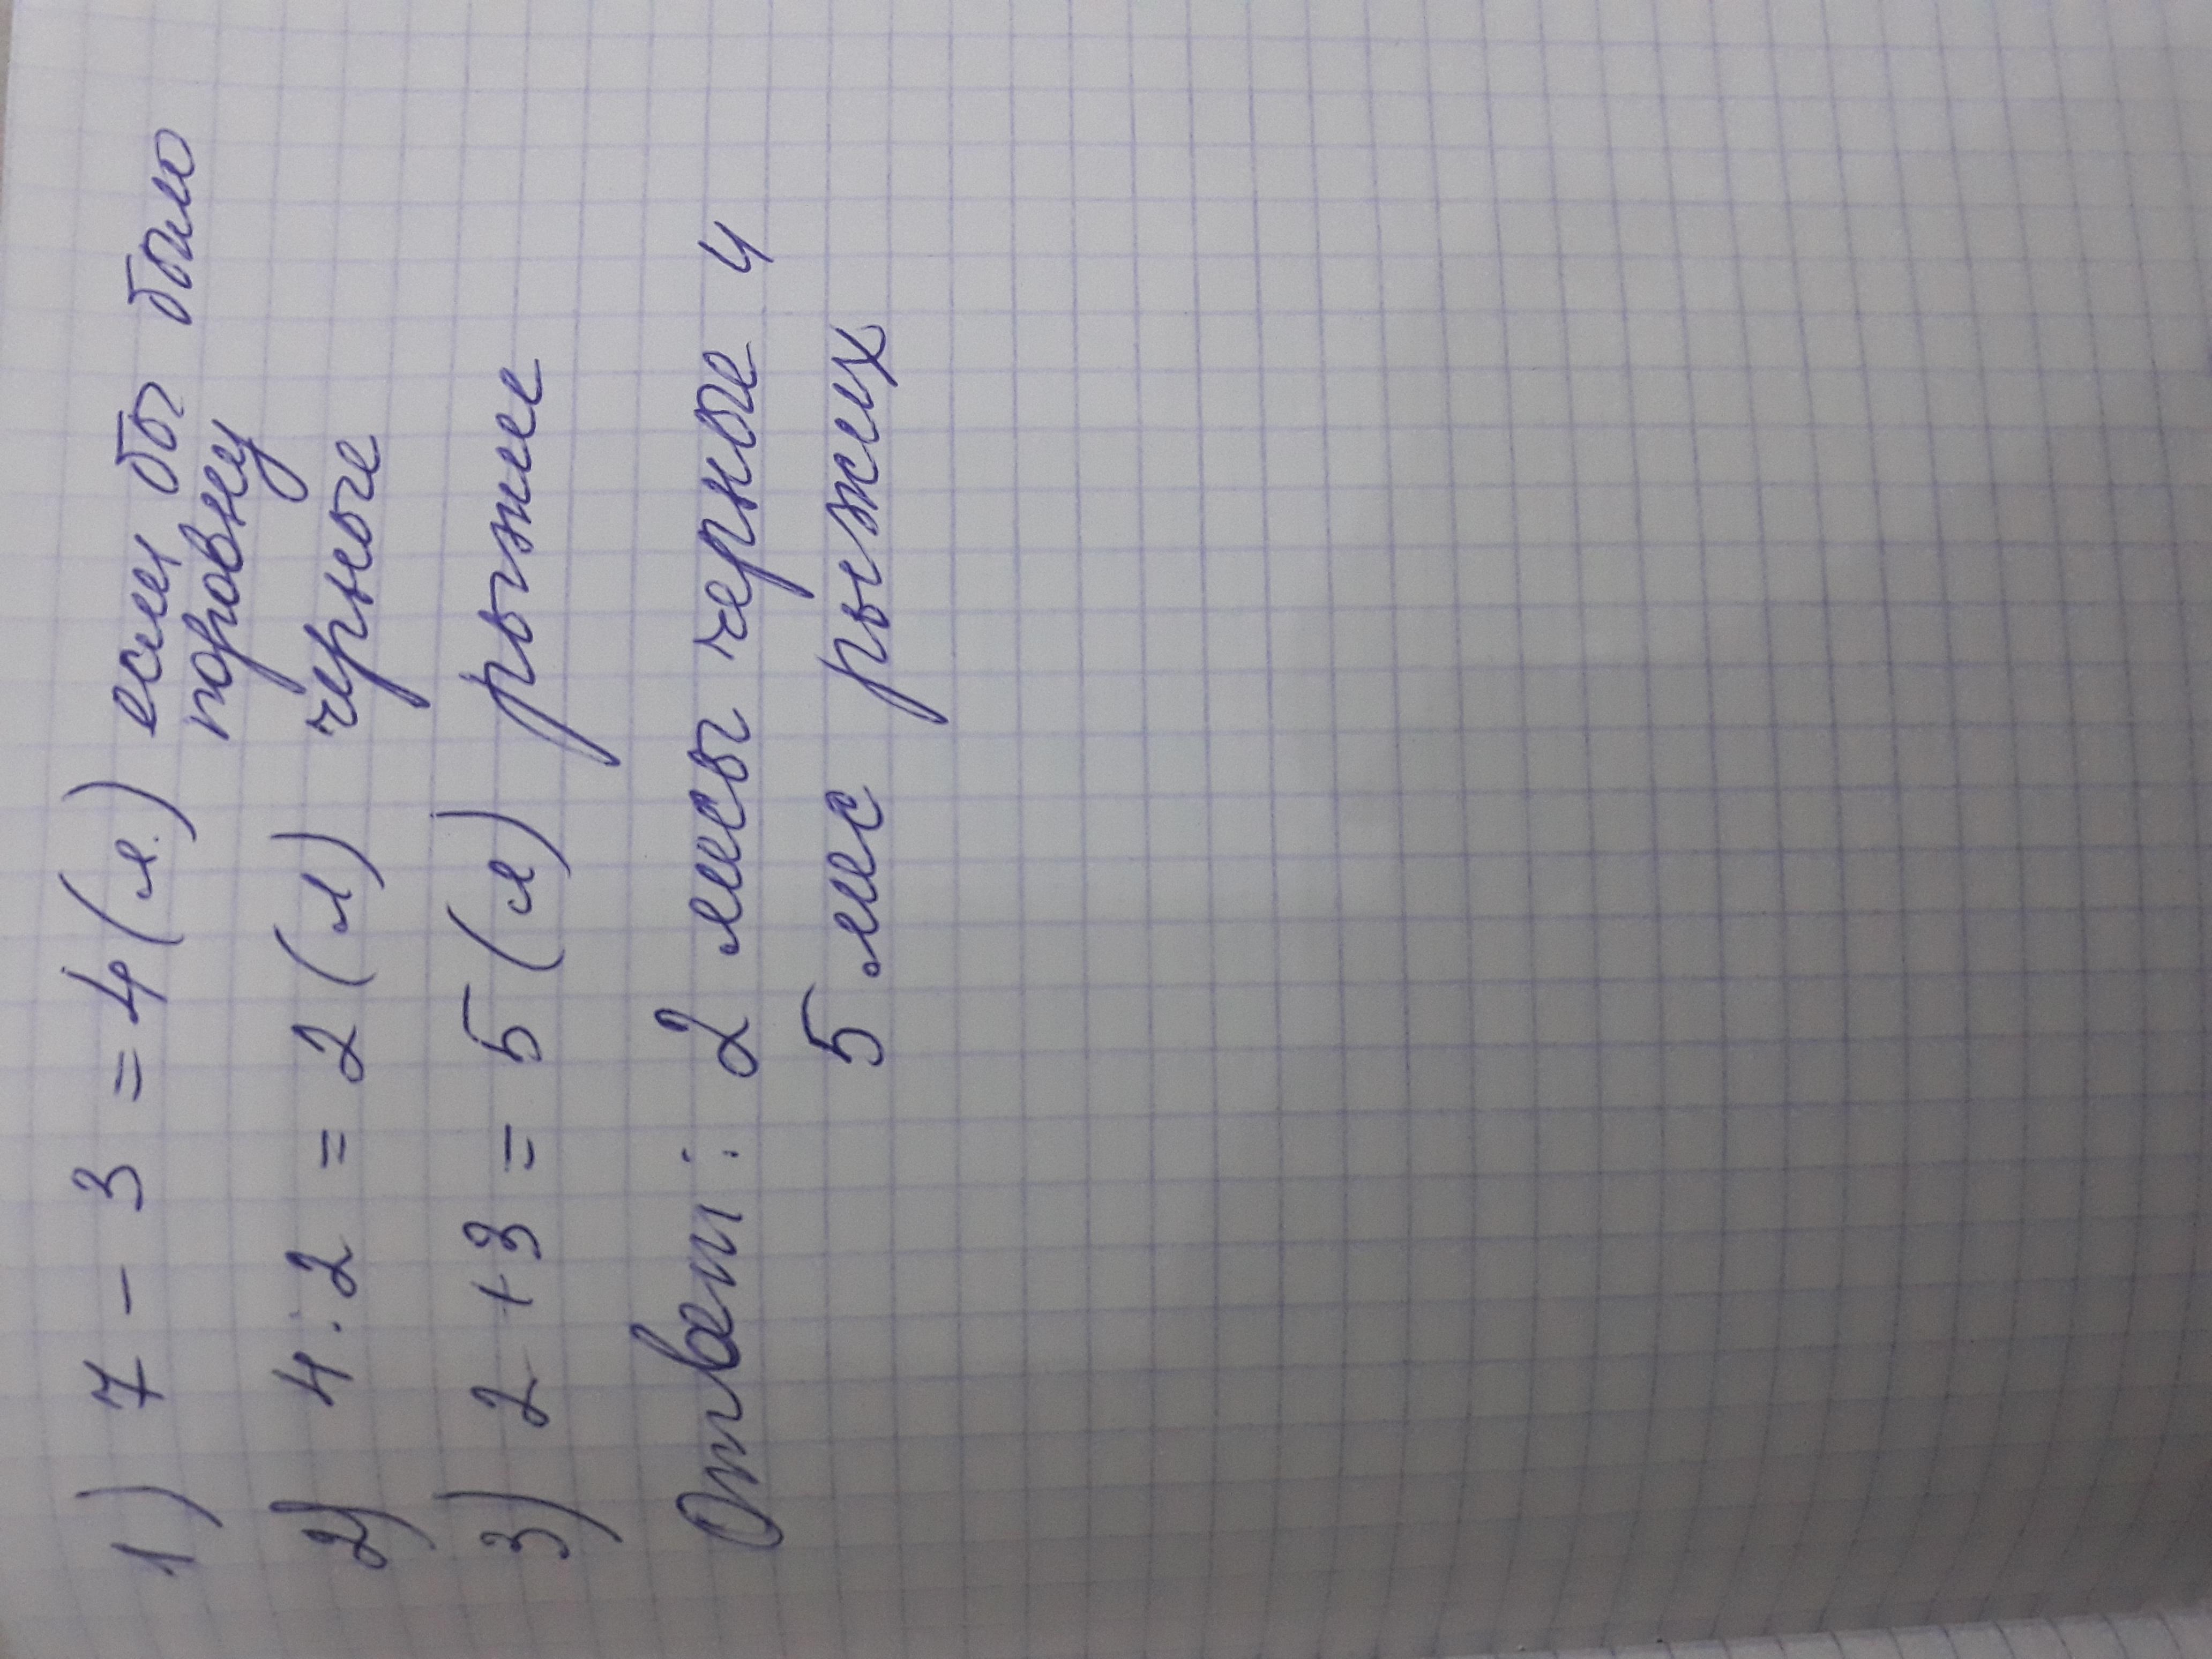 1) 7 - 3 = 4 (л.) если бы было
поровну
2) 4 : 2 = 2 (л) черные
3) 2 + 3 = 5 (л) рыжие
Ответ: 2 лисы черные и
5 лис рыжих